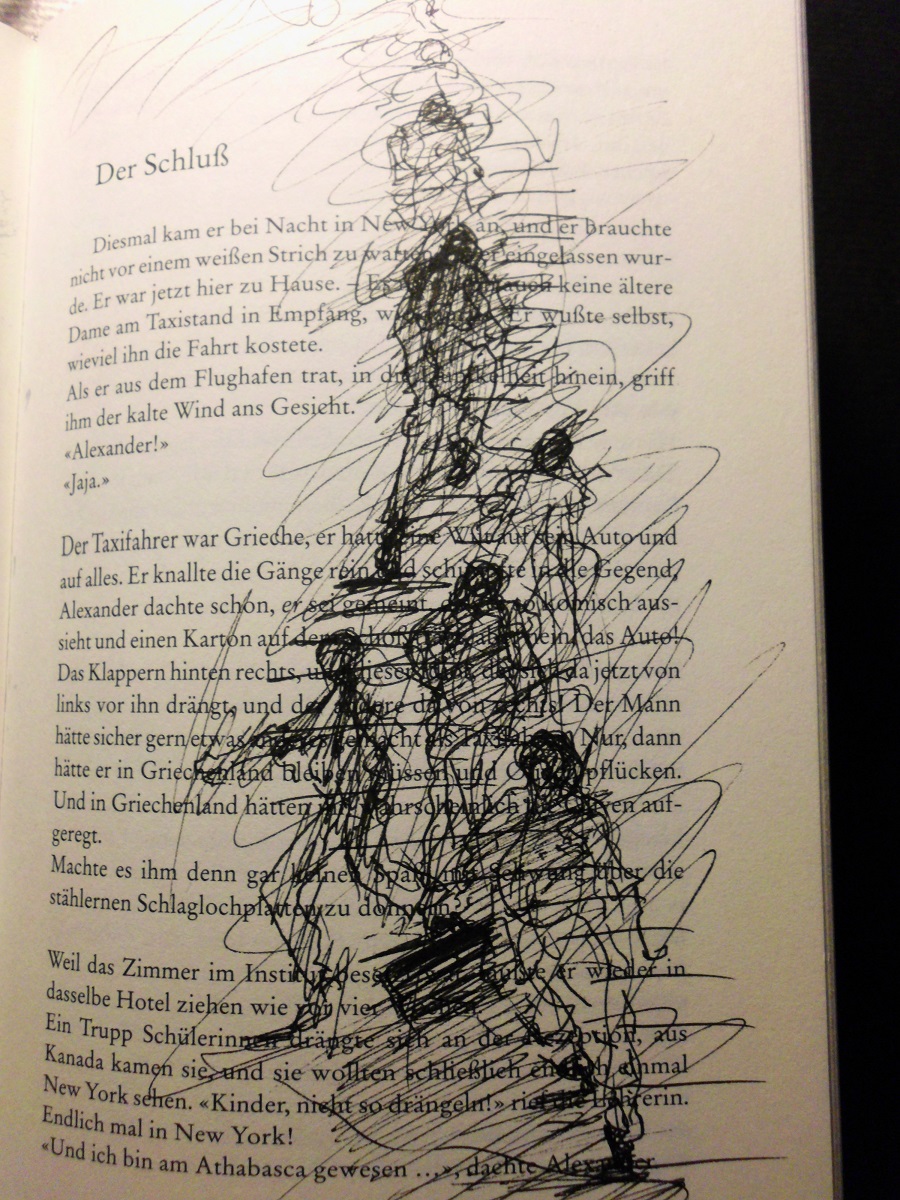 Der Schluß
Diesmal kam er bei Nacht in New York an, und er brauchte
nicht vor einem weißen Strich zu warten, er eingelassen wur-
de. Er war jetzt hier zu Hause. – Es auch keine ältere
Dame am Taxistand in Empfang, Er wußte selbst,
wieviel ihn die Fahrt kostete.
Als er aus dem Flughafen trat, in die Dunkelheit hinein, griff
ihm der kalte Wind ans Gesicht.
«Alexander!»
«Jaja.»
Der Taxifahrer war Grieche, er hatte eine Wut auf sein Auto und
auf alles. Er knallte die Gänge rein und schimpfte in die Gegend,
Alexander dachte schon, er sei gemeint, so komisch aus-
sieht und einen Karton auf dem Schoß aber nein, das Auto!
Das Klappern hinten rechts, und dieser der sich da jetzt von
links vor ihn drängt, und der andere da von rechts! Der Mann
hätte sicher gern etwas anderes gemacht als Taxifahren. Nur, dann
hätte er in Griechenland bleiben müssen und Oliven pflücken.
Und in Griechenland hätten ihn wahrscheinlich die Oliven auf-
geregt.
Machte es ihm denn gar keinen Spaß, mit Schwung über die
stählernen Schlaglochplatten zu donnern?
Weil das Zimmer im Institut besetzt war, mußte er wieder in
dasselbe Hotel ziehen wie vor vier Wochen.
Ein Trupp Schülerinnen drängte sich an der Rezeption, aus
Kanada kamen sie, und sie wollten schließlich endlich einmal
New York sehen. «Kinder, nicht so drängeln!» rief die Lehrerin.
Endlich mal in New York!
«Und ich bin am Athabasca gewesen …», dachte Alexander.